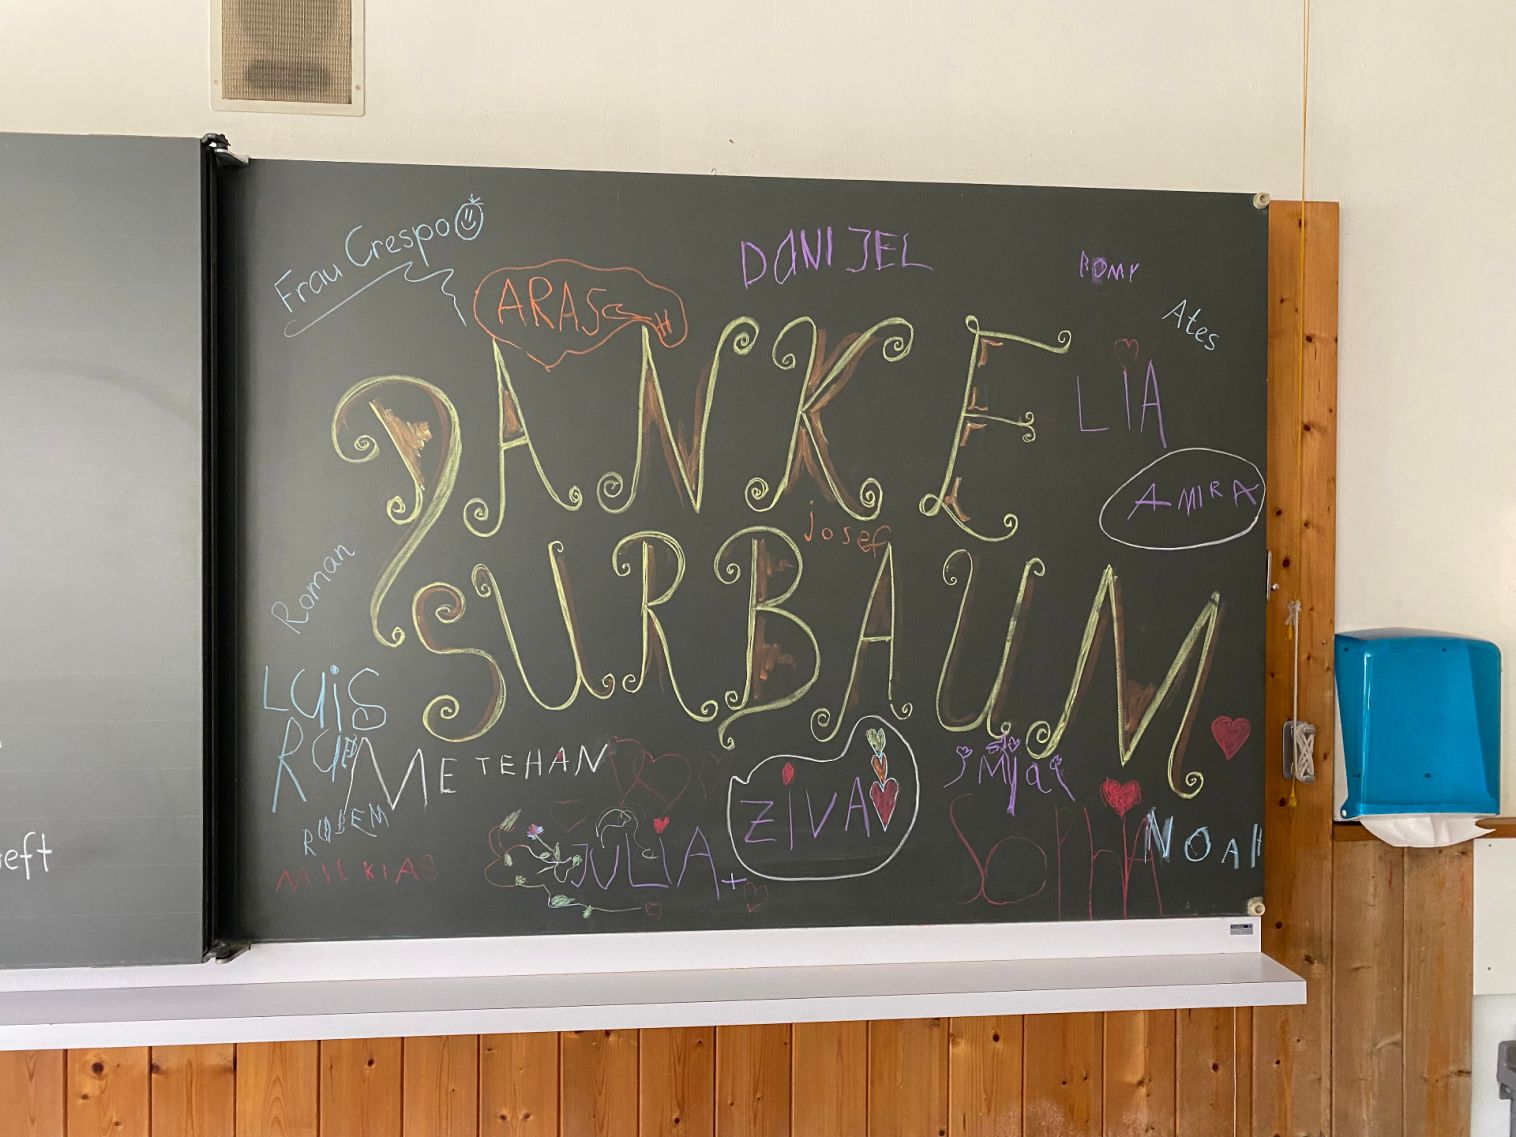 Frau Crespo
DANIJEL
ROMY
ARAS
Ates
DANKE
LIA
AMIRA
josef
Roman
SURBAUM
LUiS
METEHAN
Mya
ZIVA
RUBEM
JULIA
SOPHIA
NOAH
MILKIAS
heft